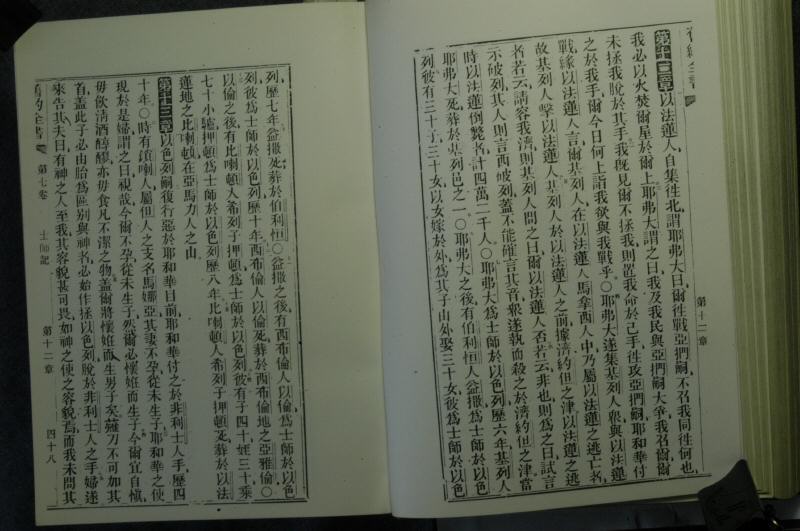 舊約全書
第十二章
第十二章以法蓮人自集徃北謂耶弗大曰爾徃戰亞捫嗣不召我同徃何也
我必以火焚爾屋於爾上耶弗大謂之曰我及我民與亞捫嗣大爭我召爾爾
未拯我脫於其手我旣見爾不拯我則置我命於己手徃攻亞捫嗣耶和華付
之於我手爾今日何上詣我欲與我戰乎○耶弗大遂集基列人衆與以法蓮
戰緣以法蓮人言爾基列人在以法蓮人馬拿西人中乃屬以法蓮之逃亡者
故基列人擊以法蓮人基列人於以法蓮人之前據濟約但之津以法蓮之逃
者若云請容我濟則基列人問之曰爾以法蓮人否若云非也則爲之曰試言
示破列其人則言西破列蓋不能確言其音衆遂執而殺之於濟約但之津當
時以法蓮倒斃者計四萬二千人○耶弗大爲士師於以色列歷六年基列人
耶弗大死葬於基列邑之一○耶弗大之後有伯利恒人益撒爲士師於以色
列彼有三十子三十女以女嫁於外爲其子由外娶三十女彼爲士師於以色
列歷七年益撒死葬於伯利恒○益撒之後有西布倫人以倫爲士師於以色
列彼爲士師於以色列歷十年西布倫人以倫死葬於西布倫地之亞雅倫○
以倫之後有比喇頓人希列子押頓爲士師於以色列彼有子四十姪三十乘
七十小驢押頓爲士師於以色列歷八年比喇頓人希列子押頓死葬於以法
蓮地之比喇頓在亞馬力人之山
第十三章以色列嗣復行惡於耶和華目前耶和華付之於非利士人手歷四
十年○時有鎖喇人屬但人之支名馬娜亞其妻不孕從未生子耶和華之使
現於是婦謂之曰視哉今爾不孕從未生子然爾必懷姙而生子今爾宜自愼
毋飮清酒醇醪亦毋食凡不潔之物蓋爾將懷姙而生男子矣薙刀不可加其
首蓋此子必由胎爲區別與神名必始作拯以色列脫於非利士人之手婦遂
來告其夫曰有神之人至我其容貌甚可畏如神之使之容貌焉而我未問其
舊約全書
第七卷
士師記
第十二章
四十八